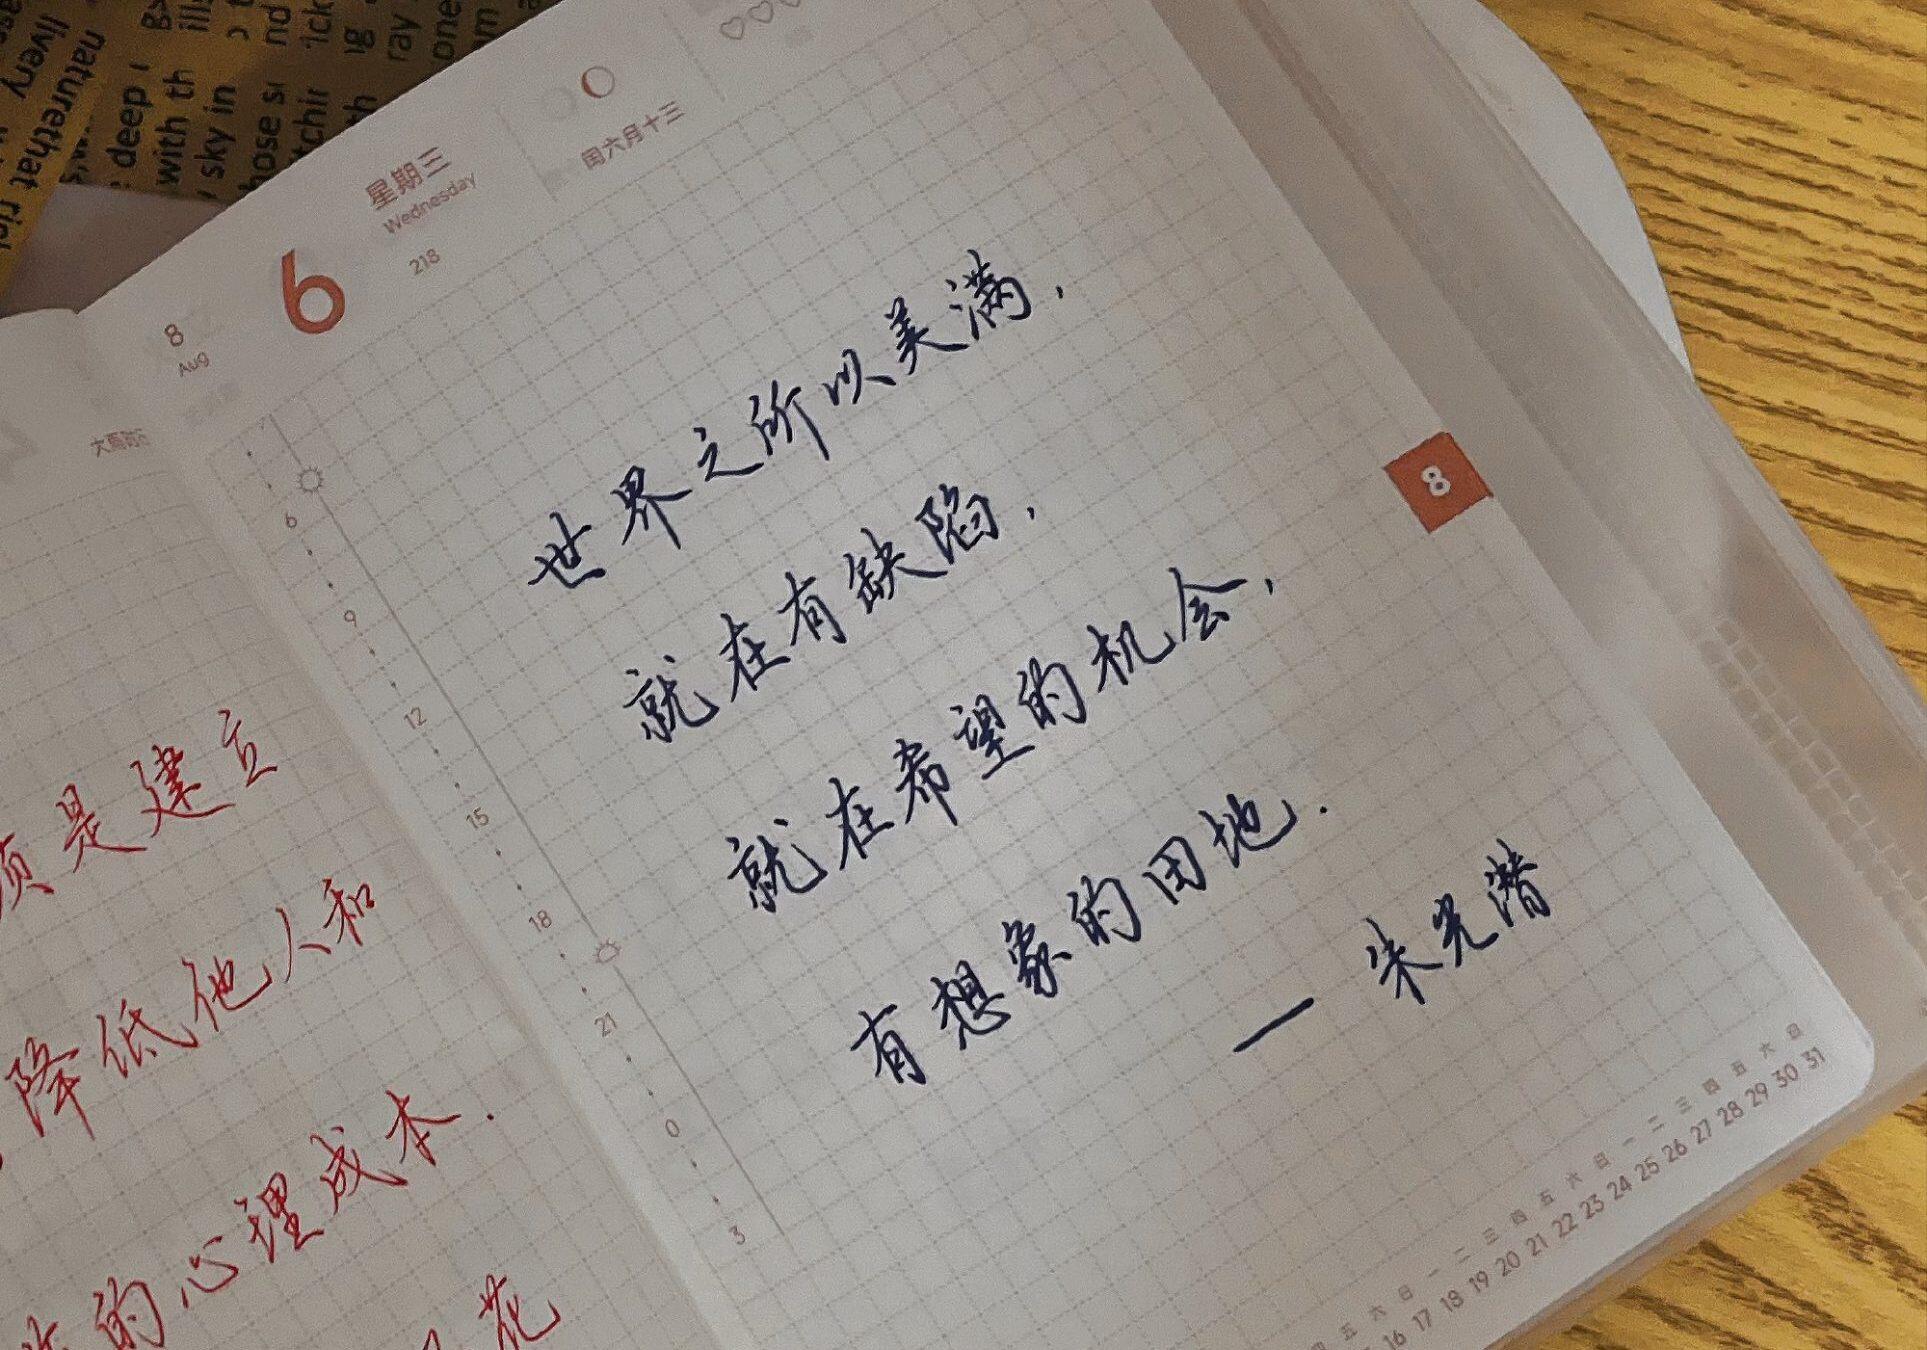 8
Aug
6
星期三
Wednesday
218
闰六月十三
世界之所以美满,
就在有缺陷,
就在希望的机会,
有想象的田地.
— 朱光潜
8
6
9
12
15
18
21
0
3
是建立
降低他人和
的心理成本.
花
一 二 三 四 五 六 日 一 二 三 四 五 六 日
16 17 18 19 20 21 22 23 24 25 26 27 28 29 30 31
naturethat
livery
deep
with th
sky in